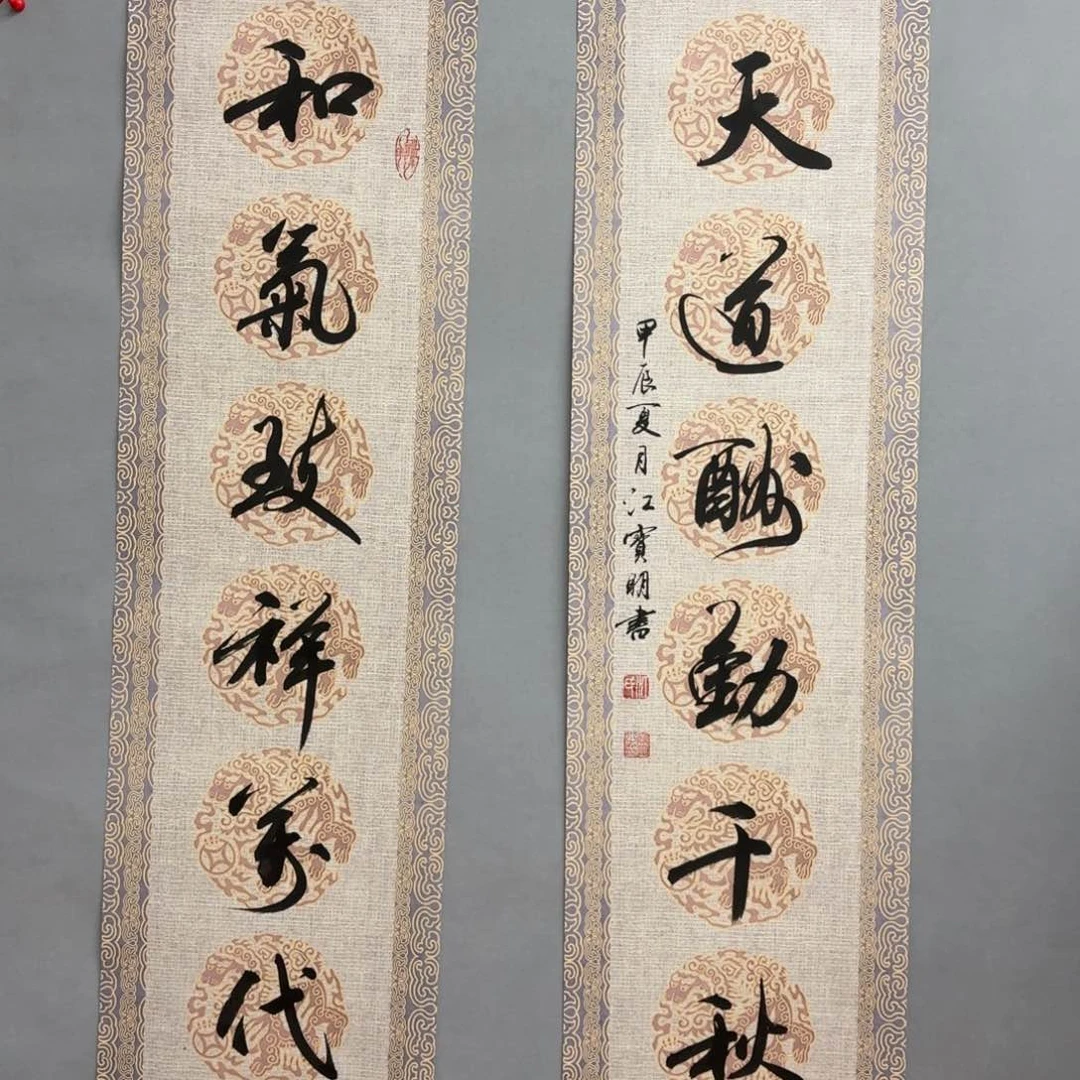 和氣致祥萬代
天道酬勤千秋
甲辰夏月江寶明書